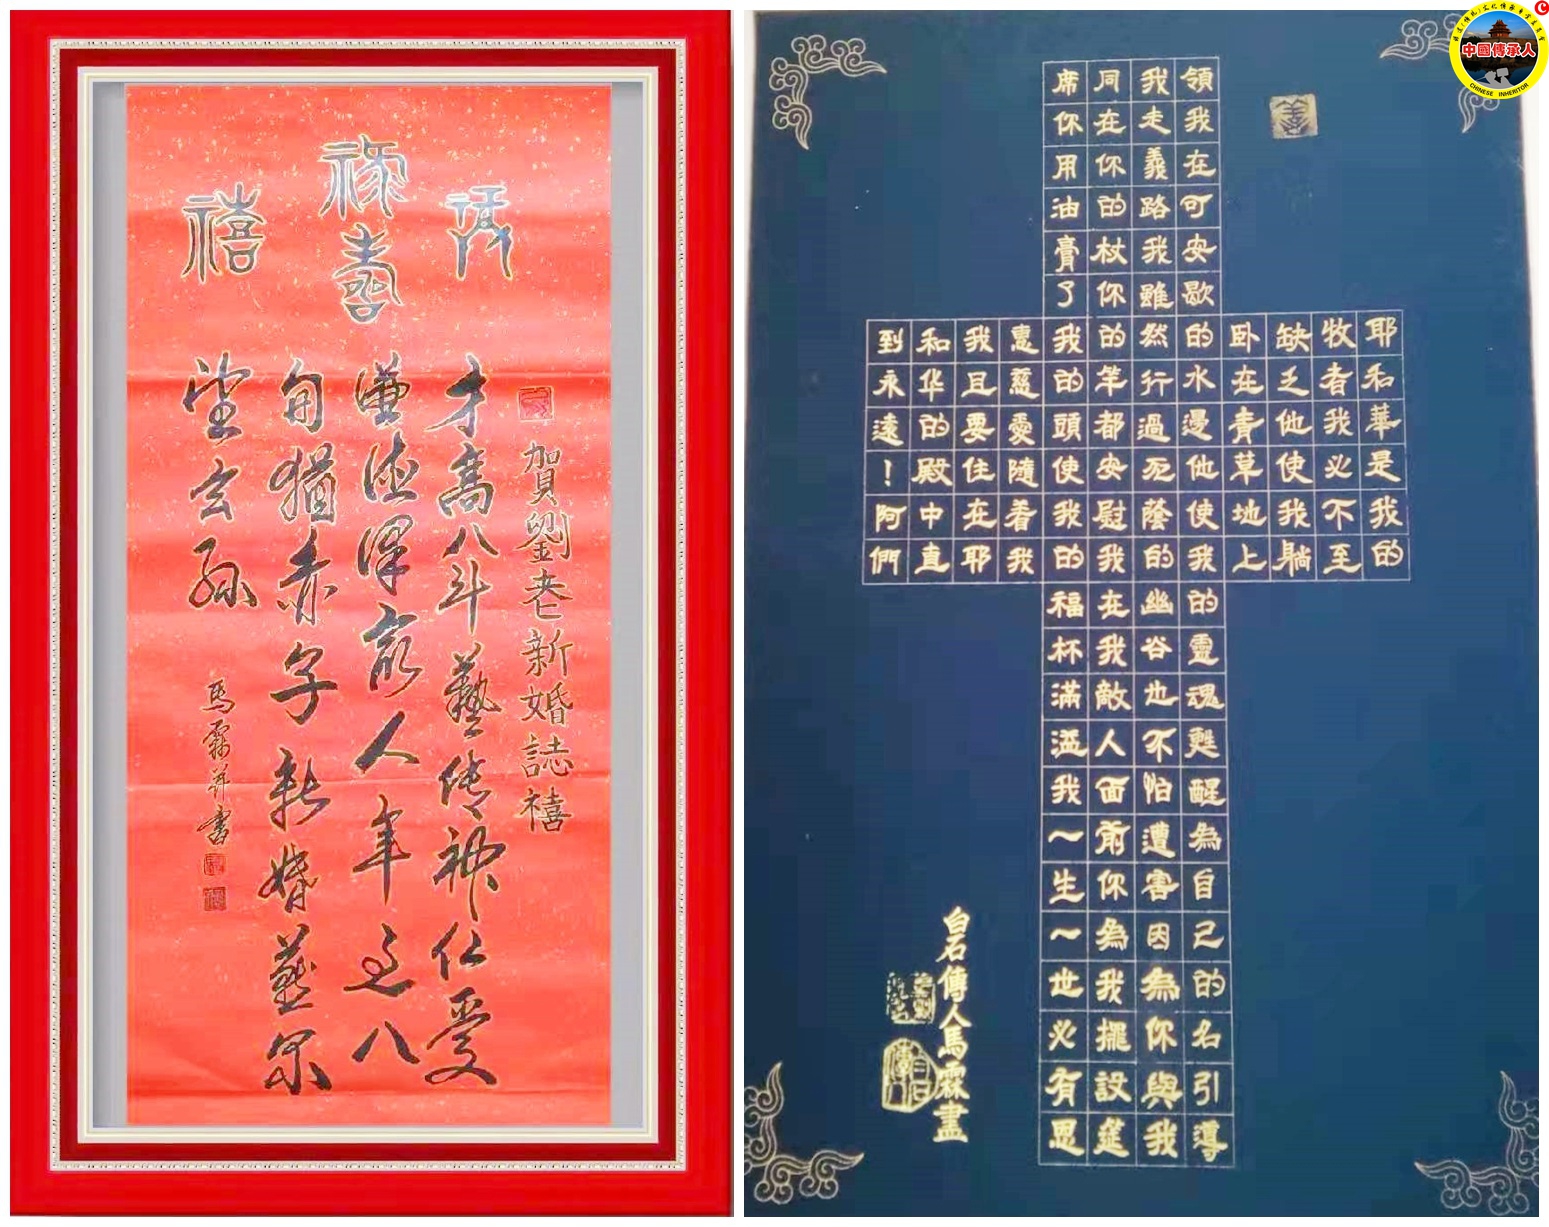 祿壽
禧
賀劉老新婚誌禧
才高八斗藝传神仁愛
谦德澤敬人年已八
旬猶赤子新婚燕尔
望玄孙
馬霖并書
耶和華是我的
牧者我必不至
缺乏他使我躺
卧在青草地上
領我在可安歇的水漫他使我的靈魂甦醒為自己的名引導
我走義路我雖然行過死蔭的幽谷也不怕遭害因為你與我
同在你的杖你的竿都安慰我在我敵人面前你為我擺設筵
席你用油膏了我的頭使我的福杯滿溢我一生一世必有恩
惠慈愛隨着我
我且要住在耶
和华的殿中直
到永遠！阿們
白石傳人馬霖畫
中國傳承人
CHINESE INHERITOR